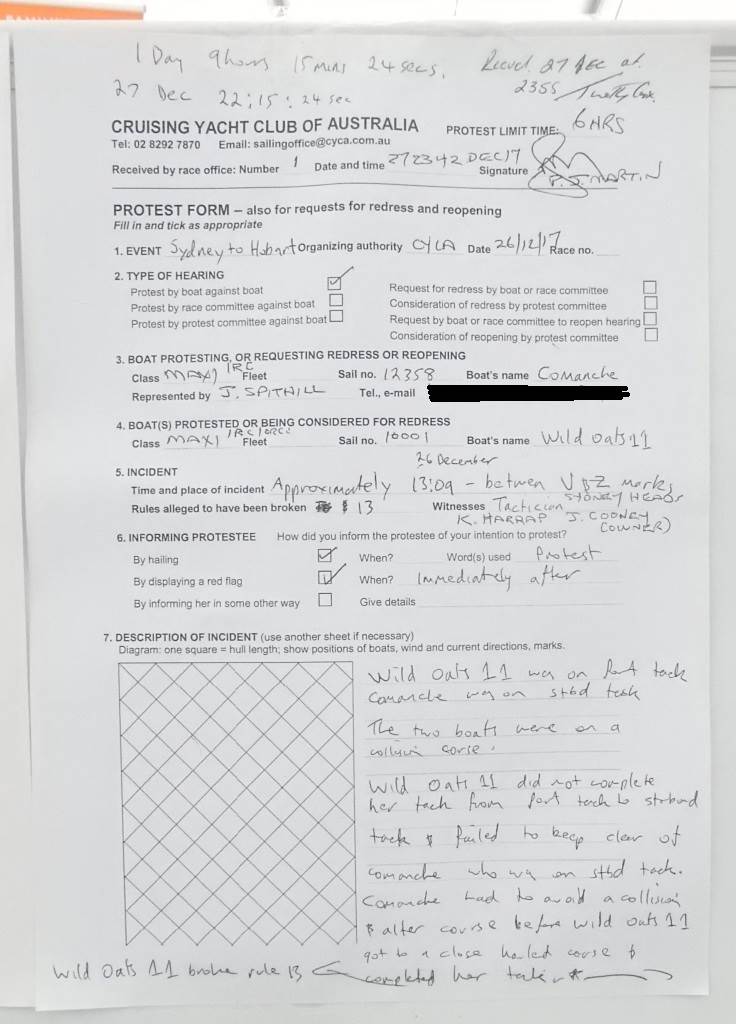 1 Day 9 hours 15 mins 24 secs. Recvd. 27 DEC at
27 Dec 22:15:24 sec 2355
CRUISING YACHT CLUB OF AUSTRALIA PROTEST LIMIT TIME: 6 HRS
Tel: 02 8292 7870 Email: sailingoffice@cyca.com.au
Received by race office: Number 1 Date and time 272342 DEC17 Signature P. J. MARTIN
PROTEST FORM – also for requests for redress and reopening
Fill in and tick as appropriate
1. EVENT Sydney to Hobart Organizing authority CYCA Date 26/12/17 Race no.
2. TYPE OF HEARING
Protest by boat against boat Request for redress by boat or race committee
Protest by race committee against boat Consideration of redress by protest committee
Protest by protest committee against boat Request by boat or race committee to reopen hearing
Consideration of reopening by protest committee
3. BOAT PROTESTING, OR REQUESTING REDRESS OR REOPENING
Class MAXI IRC Fleet Sail no. 12358 Boat's name Comanche
Represented by J. SPITHILL Tel., e-mail
4. BOAT(S) PROTESTED OR BEING CONSIDERED FOR REDRESS
Class MAXI IRC/ORCC Fleet Sail no. 10001 Boat's name Wild Oats 11
26 December
5. INCIDENT
Time and place of incident Approximately 13:09 - betwen V & Z marks
SYDNEY HEADS
Rules alleged to have been broken 13 Witnesses Tactician
K. HARRAP J. COONEY (OWNER)
6. INFORMING PROTESTEE How did you inform the protestee of your intention to protest?
By hailing When? Word(s) used Protest
By displaying a red flag When? Immediately after
By informing her in some other way Give details
7. DESCRIPTION OF INCIDENT (use another sheet if necessary)
Diagram: one square = hull length; show positions of boats, wind and current directions, marks.
Wild Oats 11 was on Port tack
Comanche was on stbd tack
The two boats were on a
collision corse.
Wild Oats 11 did not complete
her tack from Port tack to starboard
tack & failed to keep clear of
comanche who was on stbd tack.
Comanche had to avoid a collision
& alter course before Wild Oats 11
got to a close hauled course &
completed her tack *
Wild Oats 11 broke rule 13